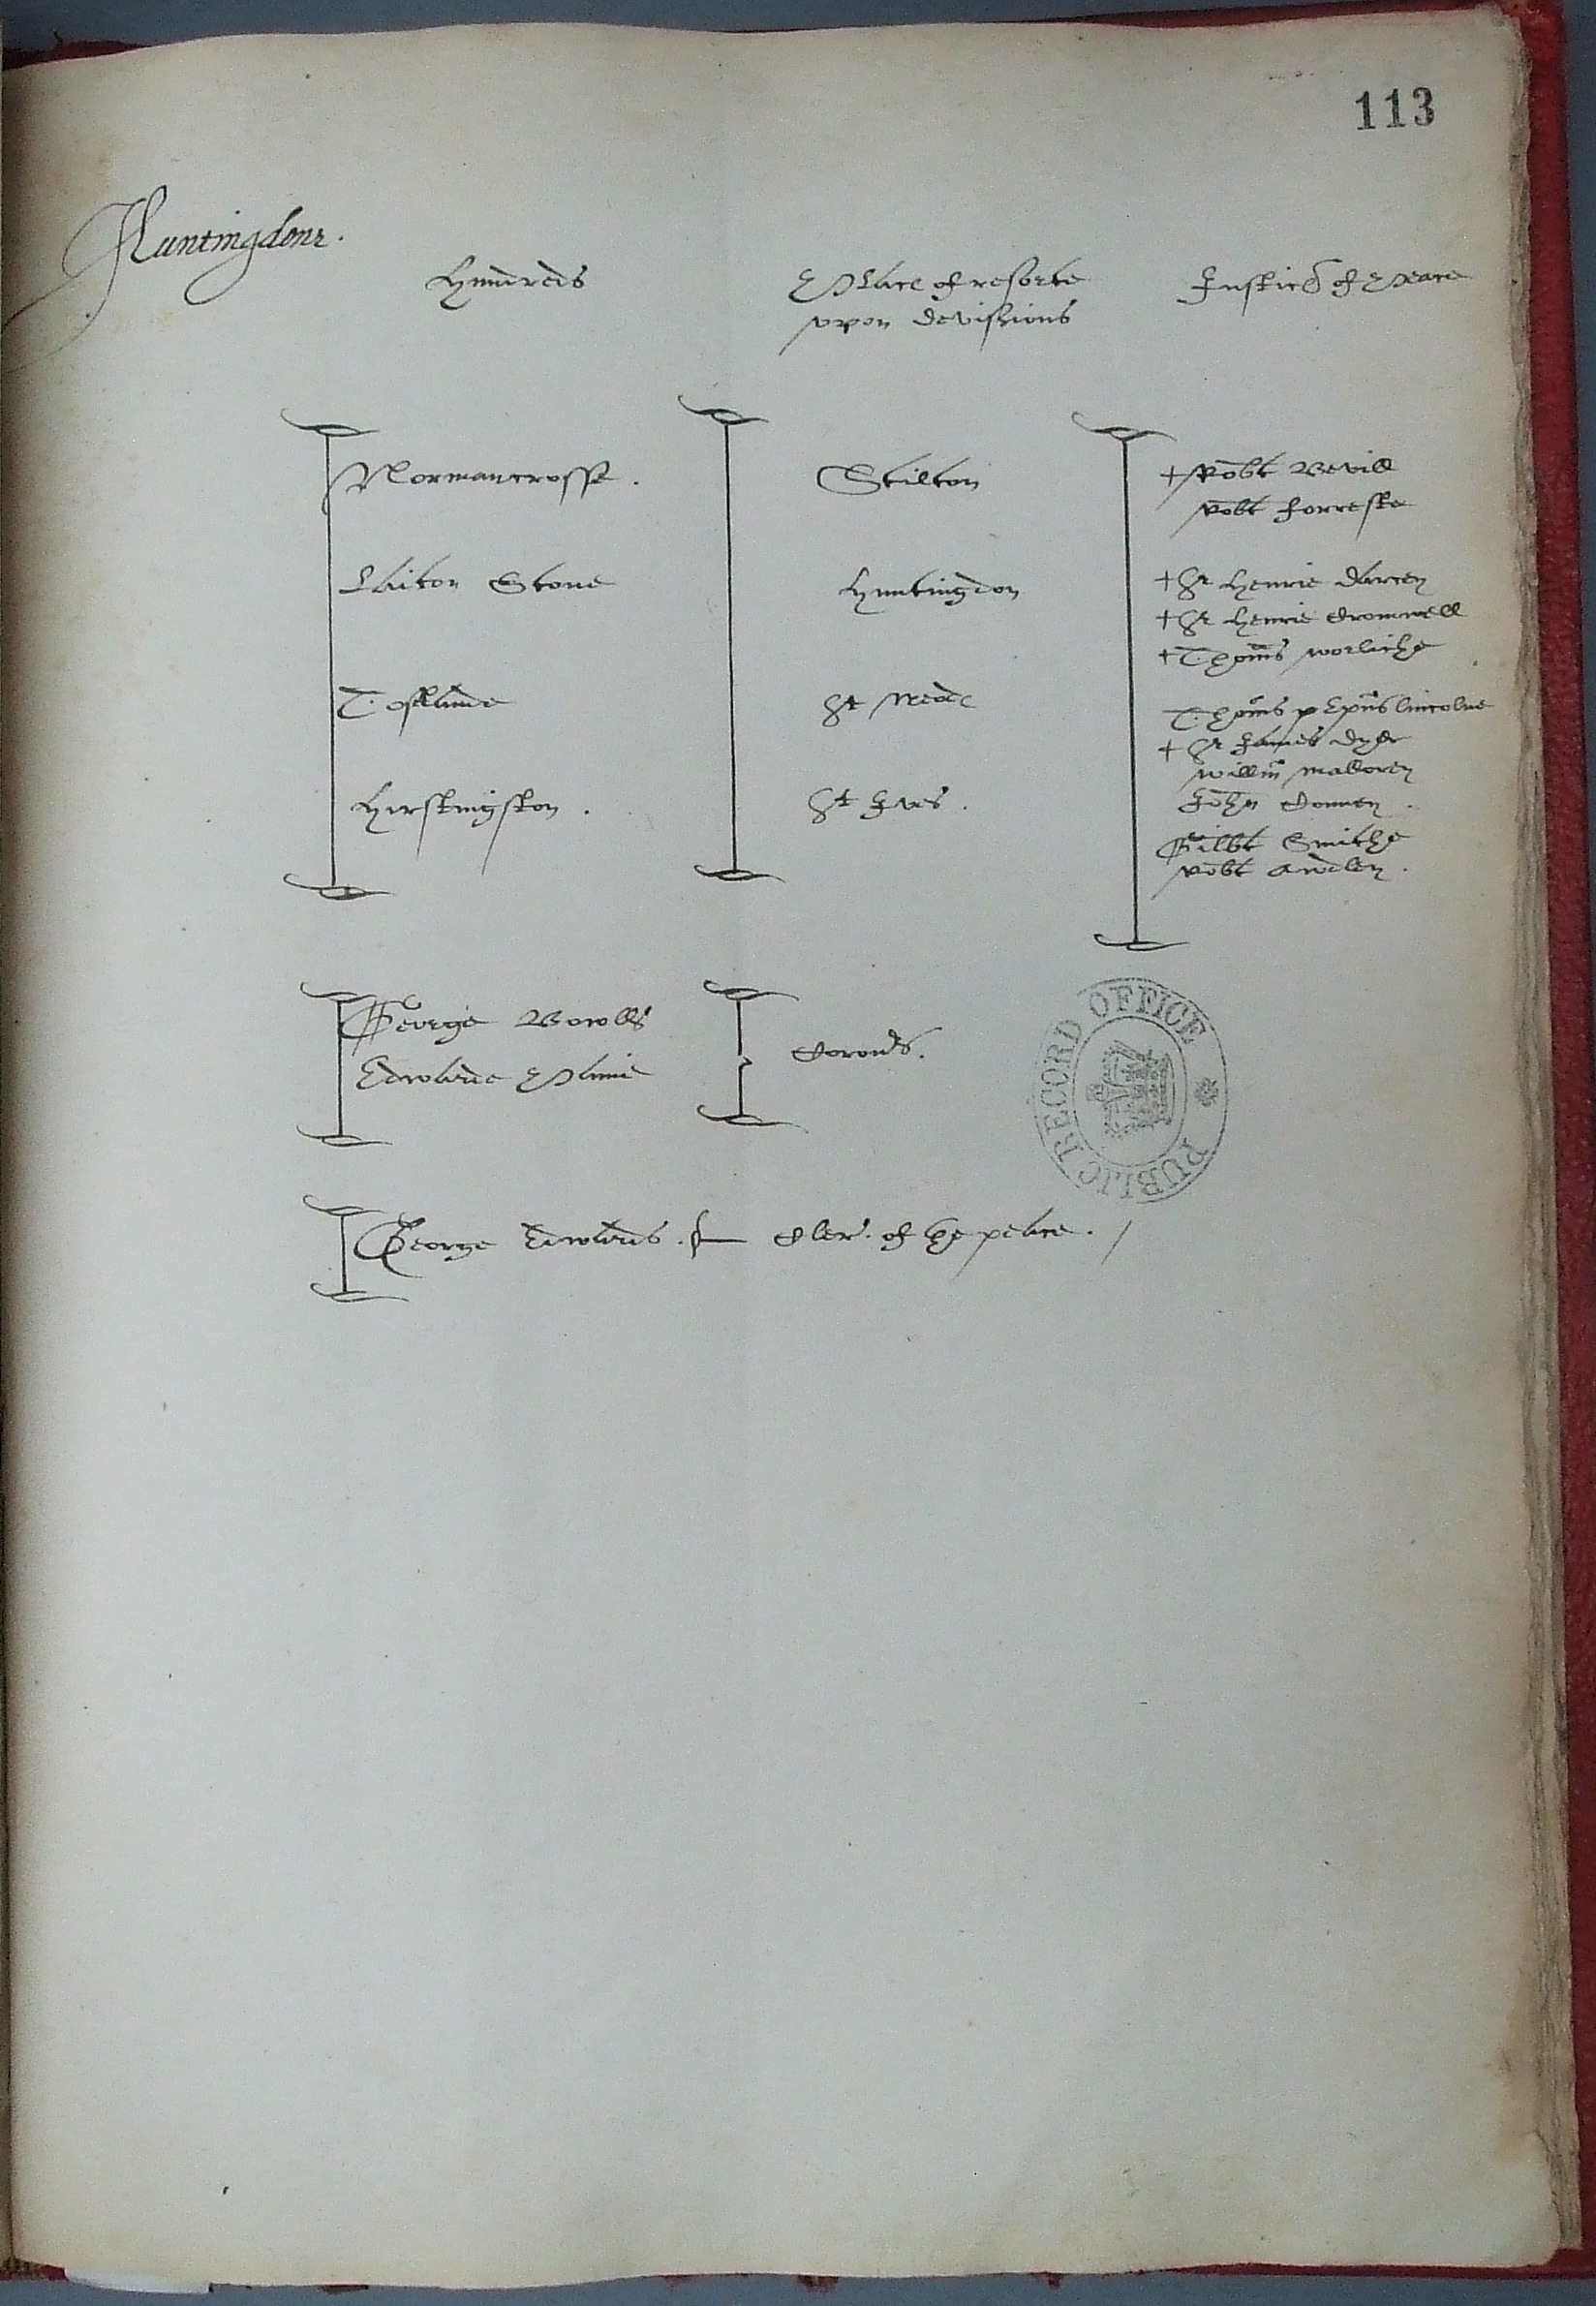 113
Huntingdone.
Hundreds
Place of resorte
vpon devisions
Justic of Peace
Normancrosse.
Laiton Stone
Toslande
Hirstingston.
Stilton
Huntingdon
St Neod
St Ives.
+ Robt Bevill
Robt Forreste
+ Sr Henrie Darcey
+ Sr Henrie Cromwell
+ Thoms Worliche
Thoms p Epūs Lincolne
+ Sr James Dyer
Willm Mallorey
John Conney.
Gilbt Smithe
Robt Awdley.
George Bowlls
Edwarde Plime
Corons.
George Edwards. Cler. of the peace. /
PUBLIC RECORD OFFICE